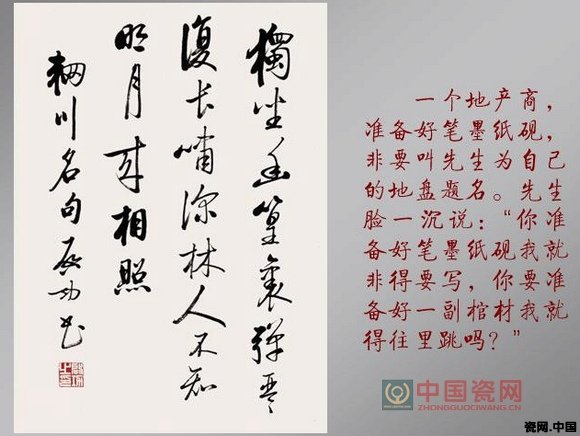 獨坐幽篁裏彈琴
復长嘯深林人不知
明月来相照
輞川名句 启功书
一个地产商，
准备好笔墨纸砚，
非要叫先生为自己
的地盘题名。先生
脸一沉说：“你准
备好笔墨纸砚我就
非得要写，你要准
备好一副棺材我就
得往里跳吗？”
中国瓷网
ZHONGGUOCIWANG.CN
瓷网.中国